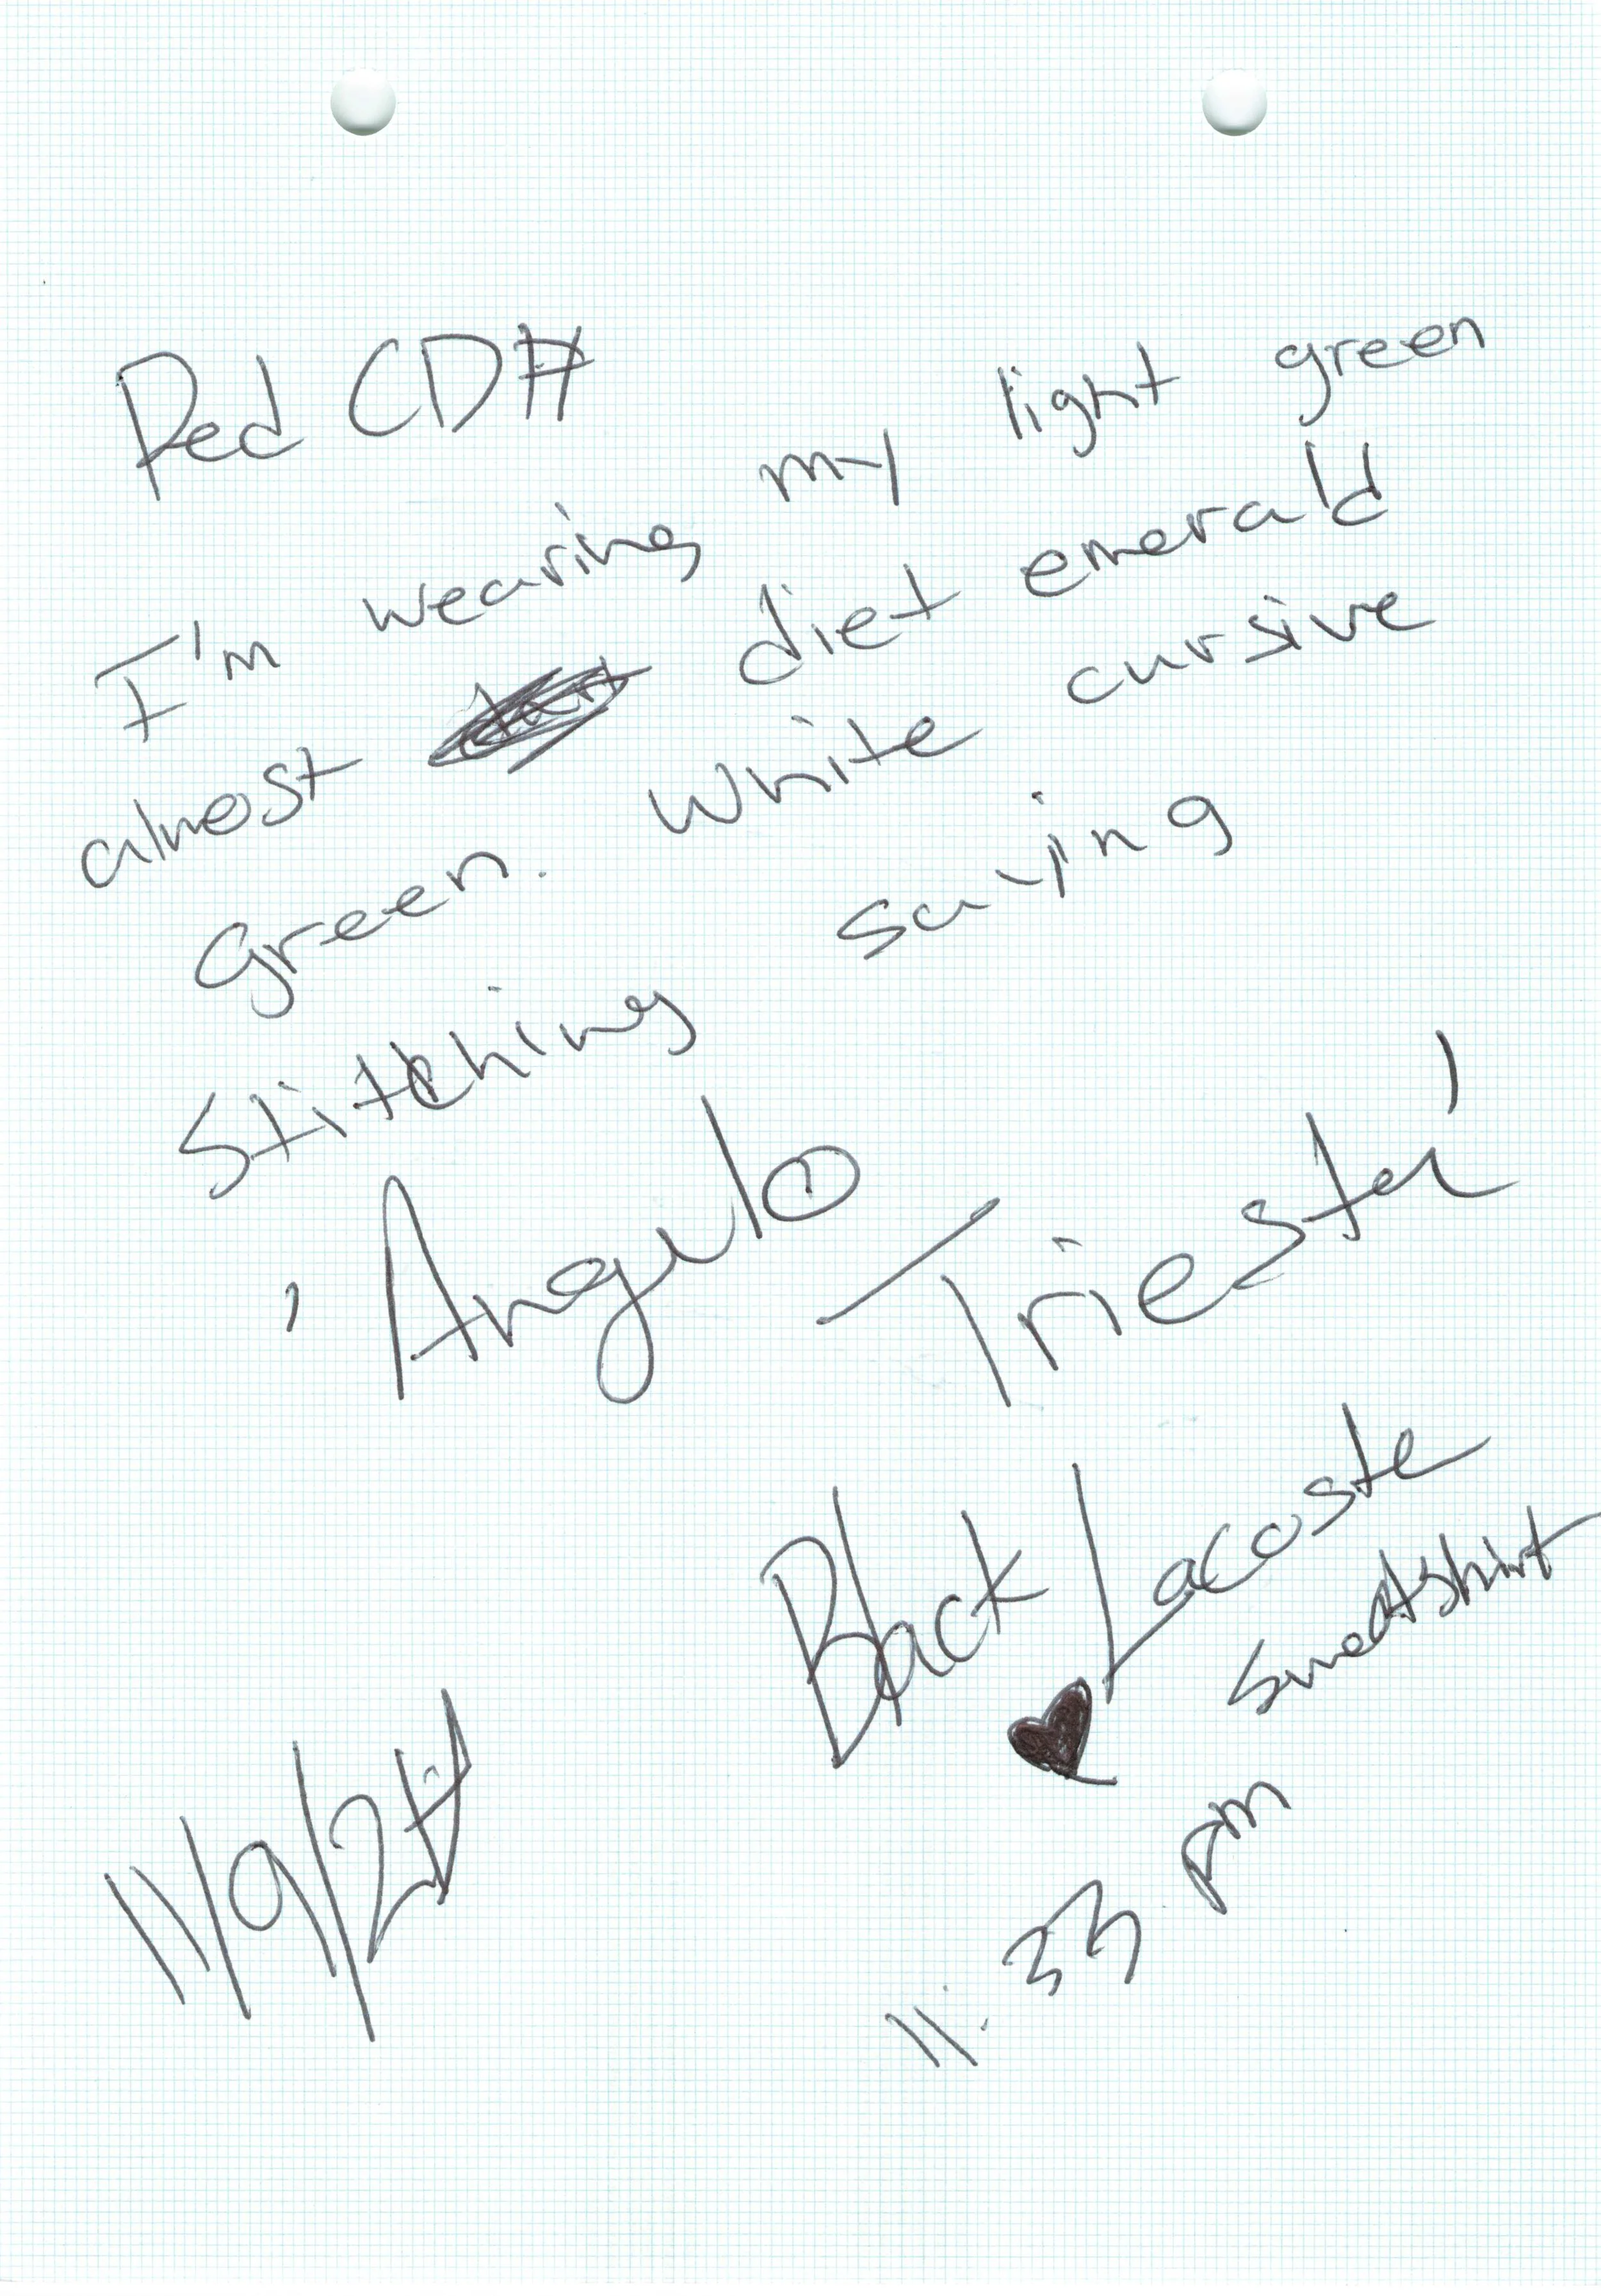 Red CDH
I'm wearing my light green
almost diet emerald
green. White cursive
Stitching saying
'Angulo Trieste'
Black Lacoste
sweatshirt
11/9/2
11:33 pm